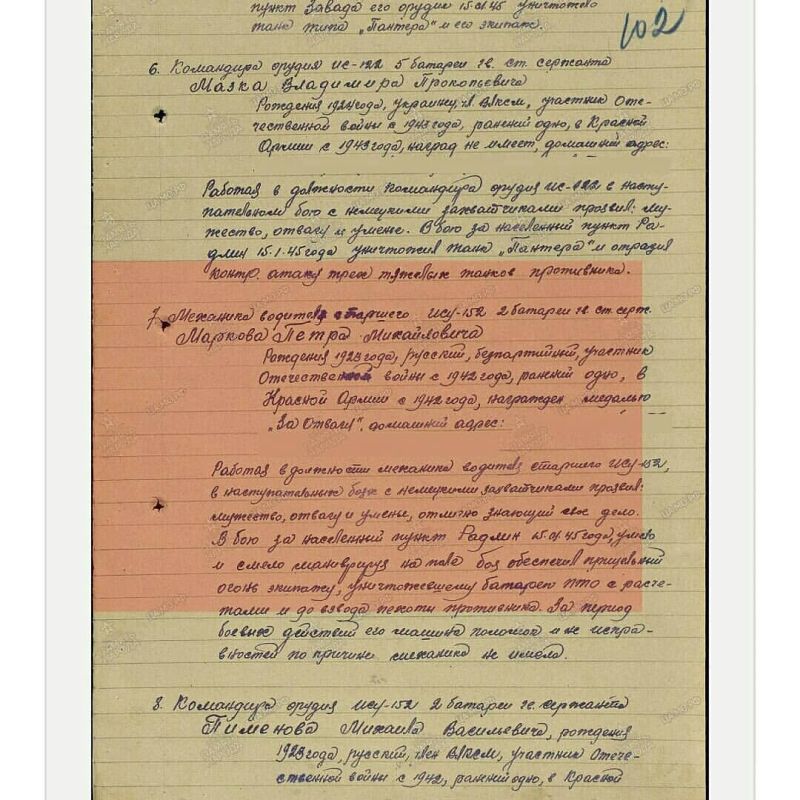 пункт Завада его орудие 15.01.45 уничтожело
танк типа „Пантера" и его экипаж.
102
6. Командира орудия ИС-122 5 батареи гв. ст. сержанта
Мазка Владимира Прокопьевича
Рождения 1924 года, украинец, чл. ВЛКСМ, участник Оте-
чественной войны с 1943 года, ранений одно, в Красной
Армии с 1943 года, наград не имеет, домашний адрес:
Работая в должности командира орудия ИС-122 в насту-
пательном бою с немецкими захватчиками проявил: му-
жество, отвагу и умение. В бою за населенный пункт Ра-
длин 15.1.45 года уничтожил танк „Пантера" и отразил
контр. атаку трех тяжелых танков противника.
7. Механика водителя старшего ИСУ-152 2 батареи гв. ст. серж.
Маркова Петра Михайловича
Рождения 1923 года, русский, безпартийный, участник
Отечественной войны с 1942 года, ранений одно, в
Красной Армии с 1942 года, награжден медалью
„За Отвагу", домашний адрес:
Работая в должности механика водителя старшего ИСУ-152,
в наступательных боях с немецкими захватчиками проявил:
мужество, отвагу и умение, отлично знающий свое дело.
В бою за населенный пункт Радлин 15.01.45 года, умело
и смело маневрируя на поле боя обеспечил прицельный
огонь экипажу, уничтожевшему батарею ПТО с расче-
тами и до взвода пехоты противника. За период
боевых действий его машина поломок и не испра-
вностей по причине механика не имела.
8. Командира орудия ИСУ-152 2 батареи гв. сержанта
Пименова Михаила Васильевича, рождения
1923 года, русский, член ВЛКСМ, участник Отече-
ственной войны с 1942, ранений одно, в Красной